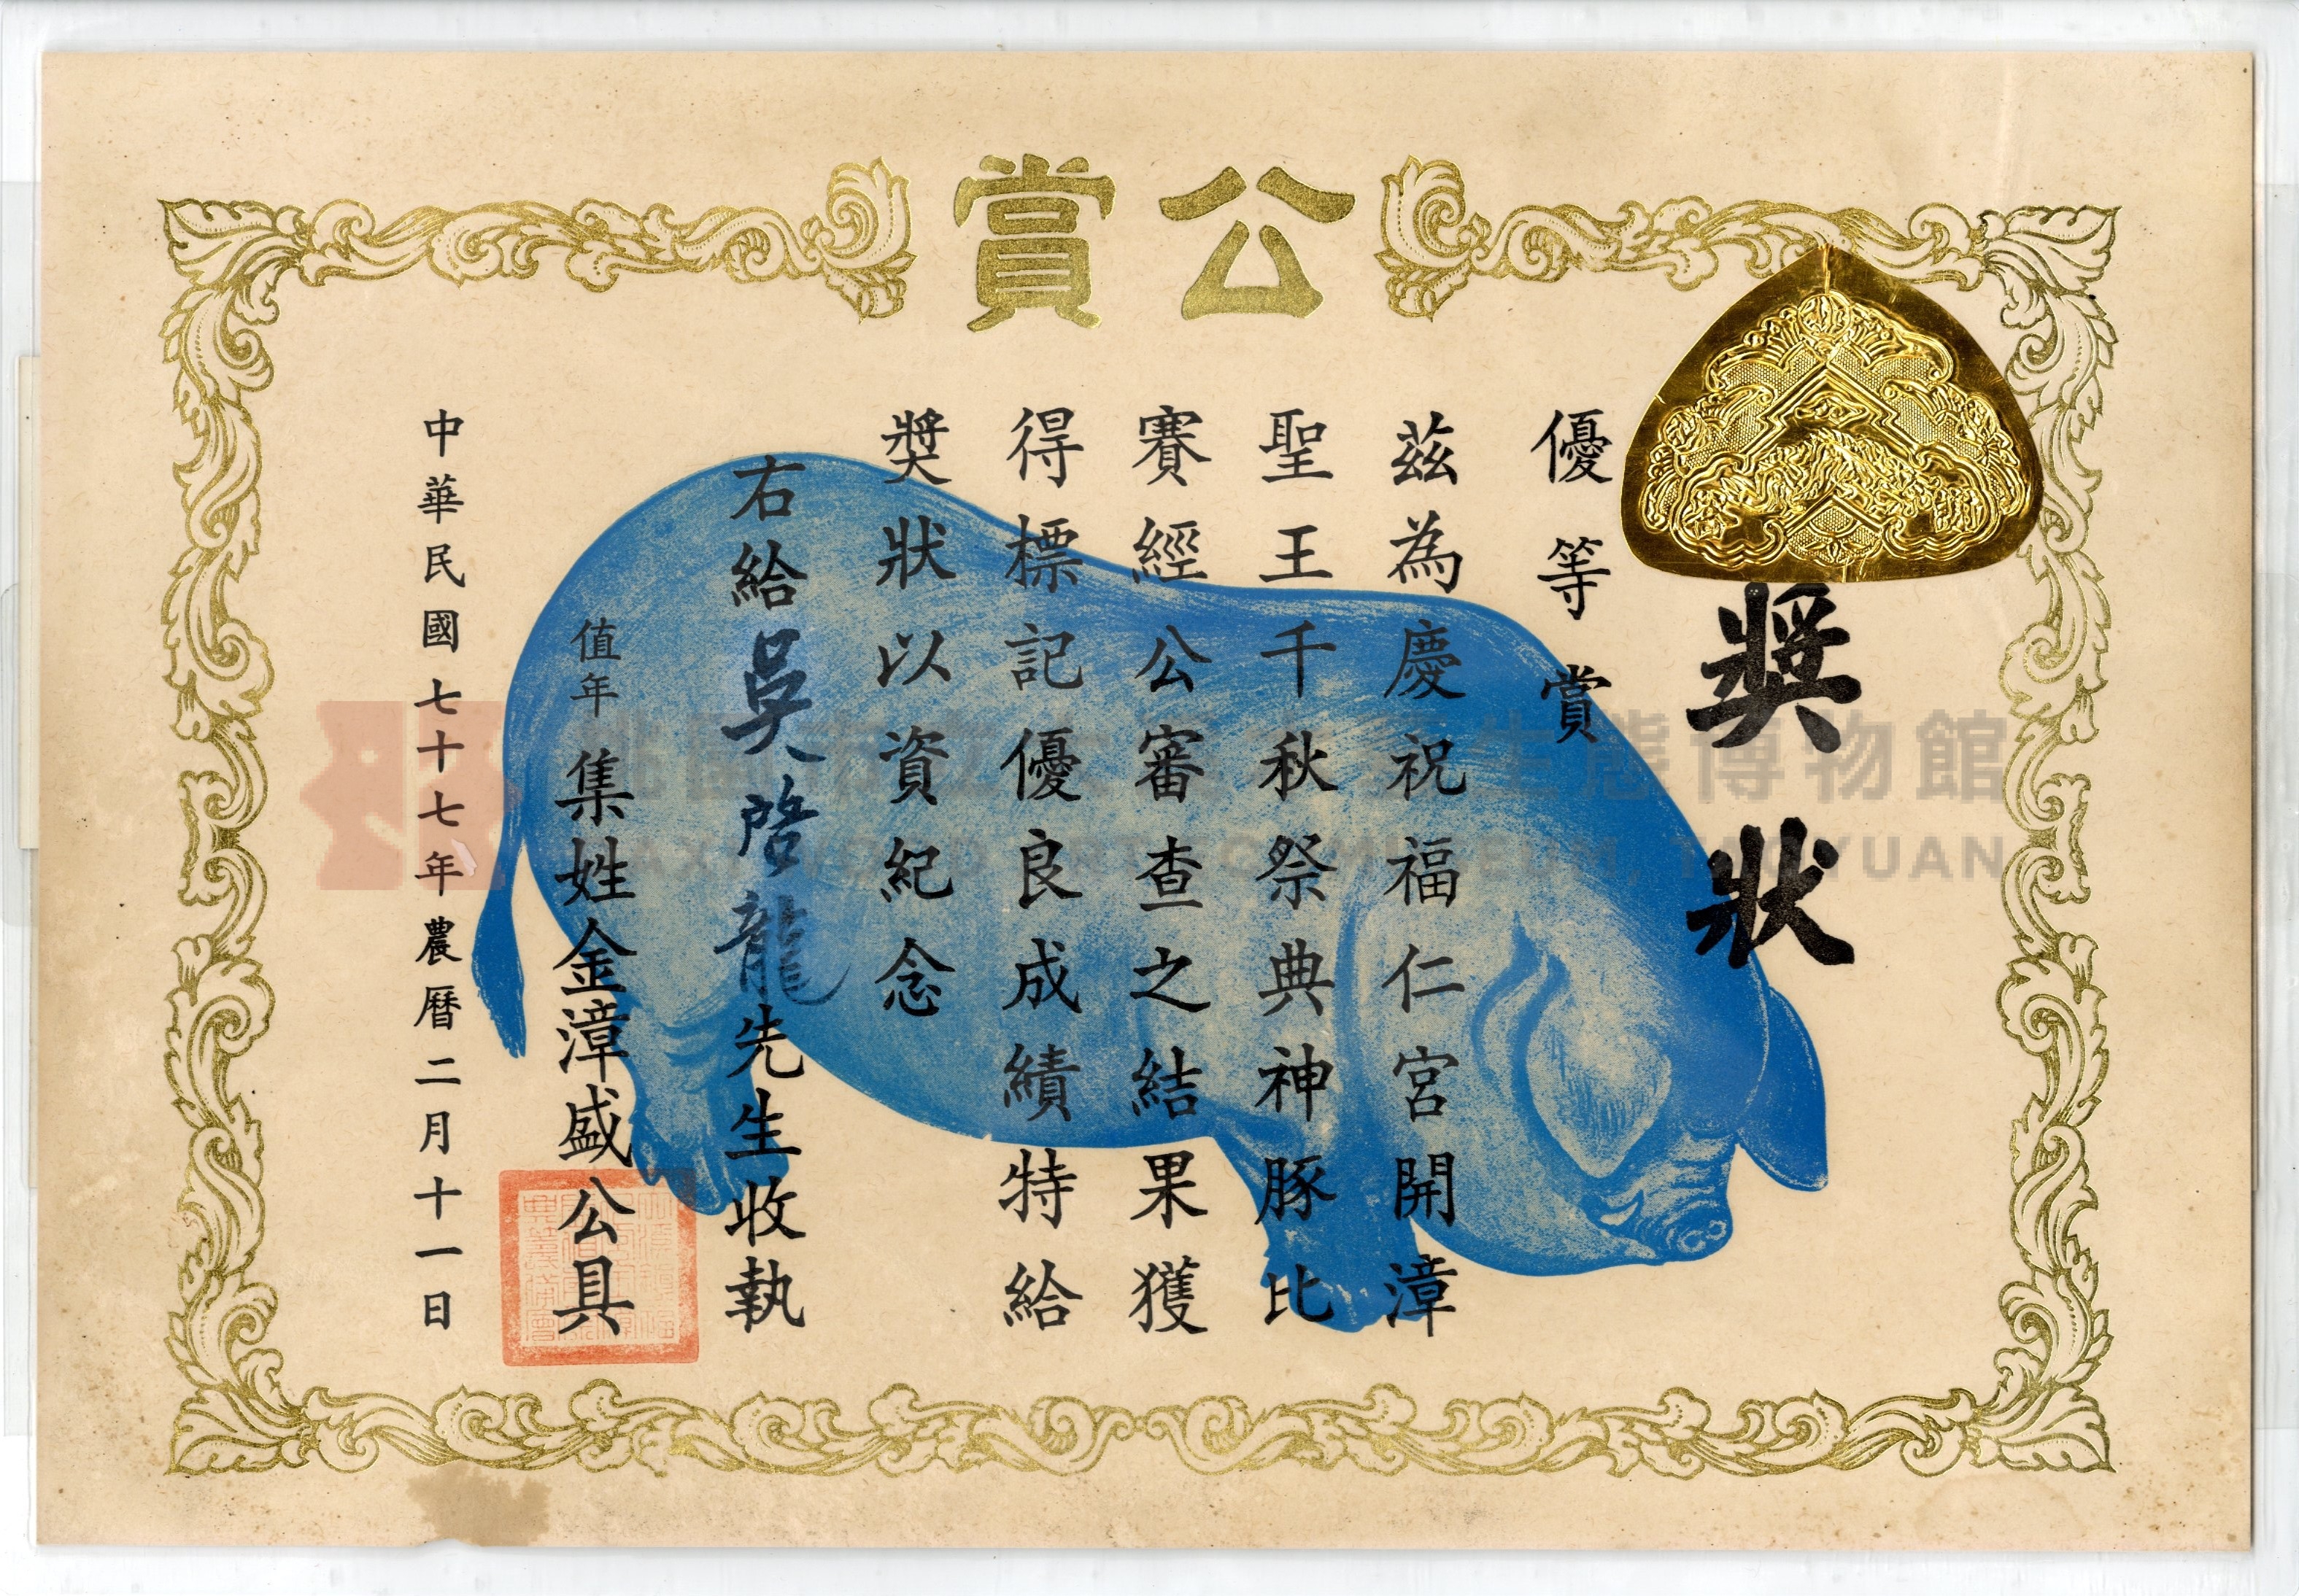 公賞
獎狀
優等賞
茲為慶祝福仁宮開漳
聖王千秋祭典神豚比
賽經公審查之結果獲
得標記優良成績特給
獎狀以資紀念
右給吳啓龍先生收執
值年集姓金漳盛公具
中華民國七十七年農曆二月十一日
生態博物館
MUSEUM, TAOYUAN